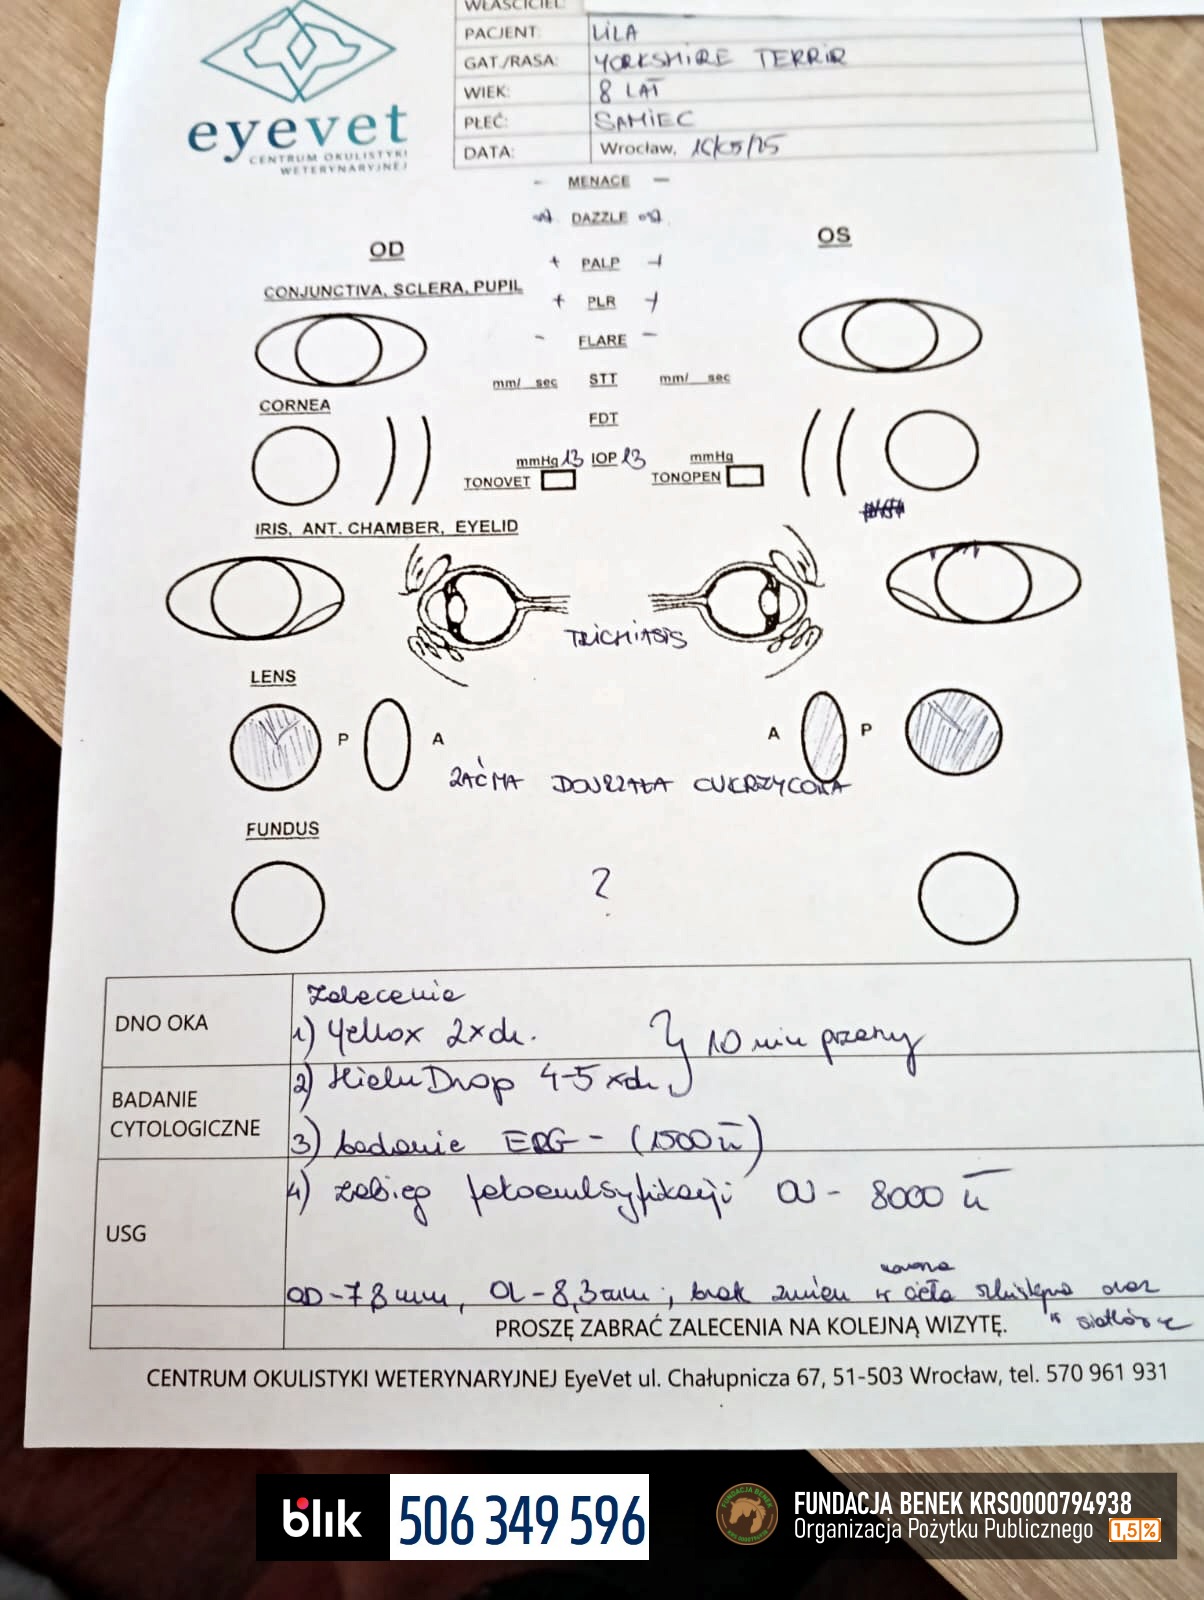 WŁAŚCICIEL:
PACJENT: LILA
GAT./RASA: YORKSHIRE TERRIR
WIEK: 8 LAT
PŁEĆ: SAMIEC
DATA: Wrocław, 16/05/25
eyevet
CENTRUM OKULISTYKI
WETERYNARYJNEJ
- MENACE -
DAZZLE
OD
OS
+ PALP +
CONJUNCTIVA, SCLERA, PUPIL
+ PLR +
- FLARE -
mm/ sec STT mm/ sec
CORNEA
FDT
mmHg 13 IOP 13 mmHg
TONOVET TONOPEN
IRIS, ANT. CHAMBER, EYELID
TRICHIASIS
LENS
P A A P
ZAĆMA DOJRZAŁA CUKRZYCOWA
FUNDUS
?
Zalecenia
DNO OKA
1) Yellox 2xdz.
10 min przerwy
2) HieluDrop 4-5 xdz
BADANIE
CYTOLOGICZNE
3) badanie ERG - (1500 zł)
4) zabieg fakoemulsyfikacji OU - 8000 zł
USG
OD - 7,8 mm, OL - 8,3 mm; brak zmian w ciele szklistym oraz
w siatkówce
PROSZĘ ZABRAĆ ZALECENIA NA KOLEJNĄ WIZYTĘ.
CENTRUM OKULISTYKI WETERYNARYJNEJ EyeVet ul. Chałupnicza 67, 51-503 Wrocław, tel. 570 961 931
blik 506 349 596
FUNDACJA BENEK KRS0000794938
Organizacja Pożytku Publicznego 1,5%
FUNDACJA BENEK
KRS 0000794938